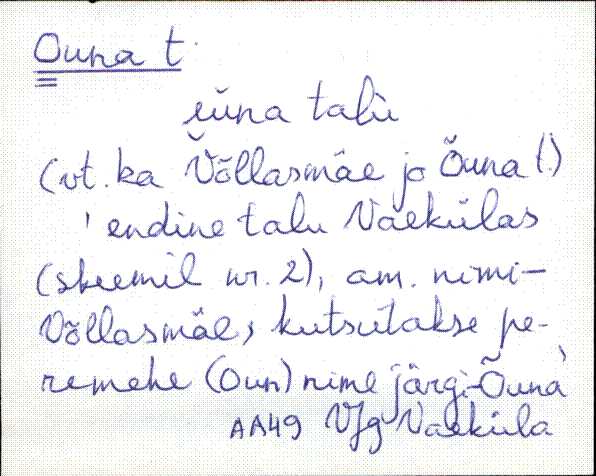 Ouna t.
eùna talù
(vt. ka Võllasmäe ja Õuna t.)
' endine talu Vaekülas
(skeemil nr. 2), am. nimi-
Võllasmäe, kutsutakse pe-
remehe (Oun) nime järgi-Õuna'
AA49 VJg Vaeküla